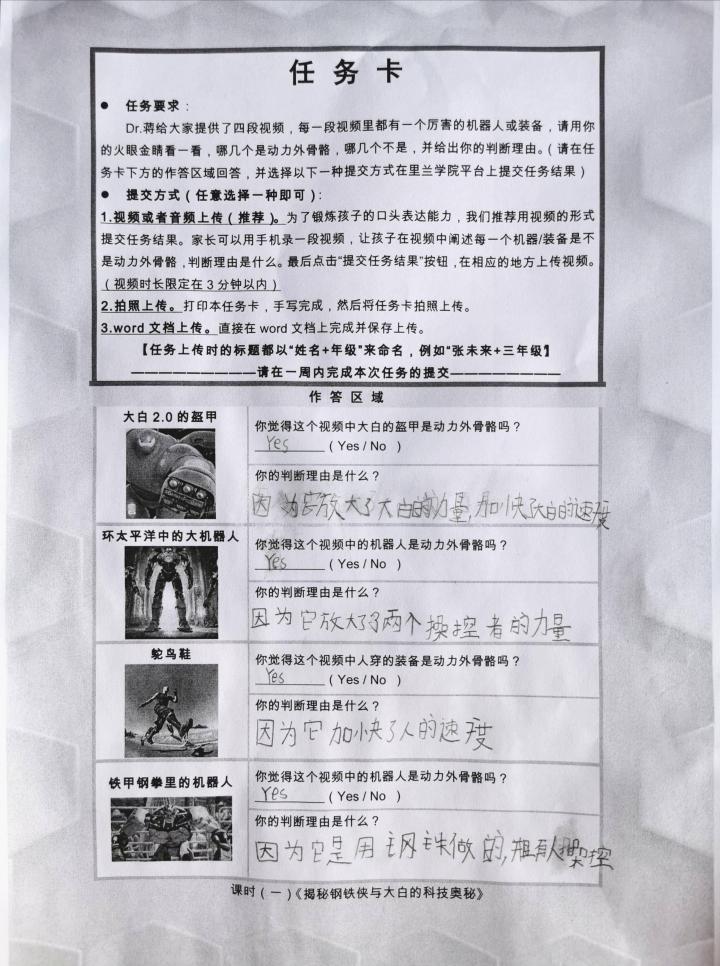 任务卡
● 任务要求：
Dr.蒋给大家提供了四段视频，每一段视频里都有一个厉害的机器人或装备，请用你
的火眼金睛看一看，哪几个是动力外骨骼，哪几个不是，并给出你的判断理由。（请在任
务卡下方的作答区域回答，并选择以下一种提交方式在里兰学院平台上提交任务结果）
● 提交方式（任意选择一种即可）：
1.视频或者音频上传（推荐）。为了锻炼孩子的口头表达能力，我们推荐用视频的形式
提交任务结果。家长可以用手机录一段视频，让孩子在视频中阐述每一个机器/装备是不
是动力外骨骼，判断理由是什么。最后点击“提交任务结果”按钮，在相应的地方上传视频。
（视频时长限定在3分钟以内）
2.拍照上传。打印本任务卡，手写完成，然后将任务卡拍照上传。
3.word文档上传。直接在word文档上完成并保存上传。
【任务上传时的标题都以“姓名+年级”来命名，例如“张未来+三年级】
——————————请在一周内完成本次任务的提交——————————
作答区域
大白2.0的盔甲
你觉得这个视频中大白的盔甲是动力外骨骼吗？
Yes （Yes / No ）
你的判断理由是什么？
因为它放大了大白的力量，加快了大白的速度
环太平洋中的大机器人
你觉得这个视频中的机器人是动力外骨骼吗？
Yes （Yes / No ）
你的判断理由是什么？
因为它放大了两个操控者的力量
鸵鸟鞋
你觉得这个视频中人穿的装备是动力外骨骼吗？
Yes （Yes / No ）
你的判断理由是什么？
因为它加快了人的速度
铁甲钢拳里的机器人
你觉得这个视频中的机器人是动力外骨骼吗？
Yes （Yes / No ）
你的判断理由是什么？
因为它是用钢铁做的，有人操控
课时（一）《揭秘钢铁侠与大白的科技奥秘》